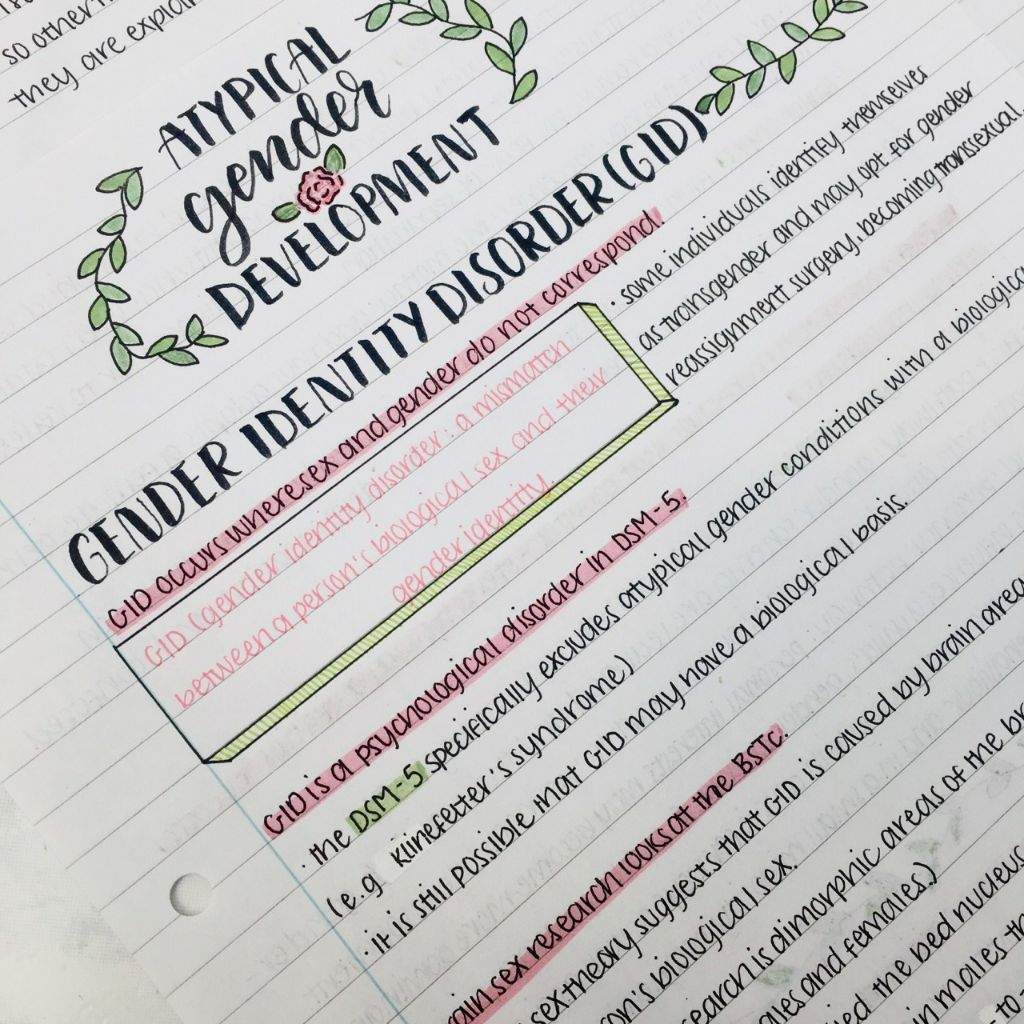 so other
they are explai
ATYPICAL
gender
DEVELOPMENT
GENDER IDENTITY DISORDER (GID)
GID occurs where sex and gender do not correspond.
GID (gender identity disorder: a mismatch
between a person's biological sex and their
gender identity
· some individuals identify themselves
as transgender and may opt for gender
reassignment surgery, becoming transsexual.
GID is a psychological disorder in DSM-5.
· the DSM-5 specifically excludes atypical gender conditions with a biologica
(e.g Klinefelter's syndrome)
· it is still possible that GID may have a biological basis.
ain sex research looks at the BSTc.
sex theory suggests that GID is caused by brain area
on's biological sex.
search is dimorphic areas of the br
ales and females)
ied the bed nucleus
in males th
-to-